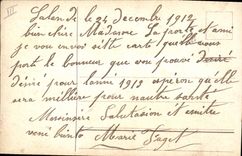 III
Salon de le 24 decembre 1912
bien chère Madame La porte et ami
je vou envoi sett carte quelle vous
porte le bonneur que vou pouvé
désiré pour lanné 1913 esperon quelle
sera meilliere pour nautre santé
Messincire Salutasion et
venè biento Marie Faget